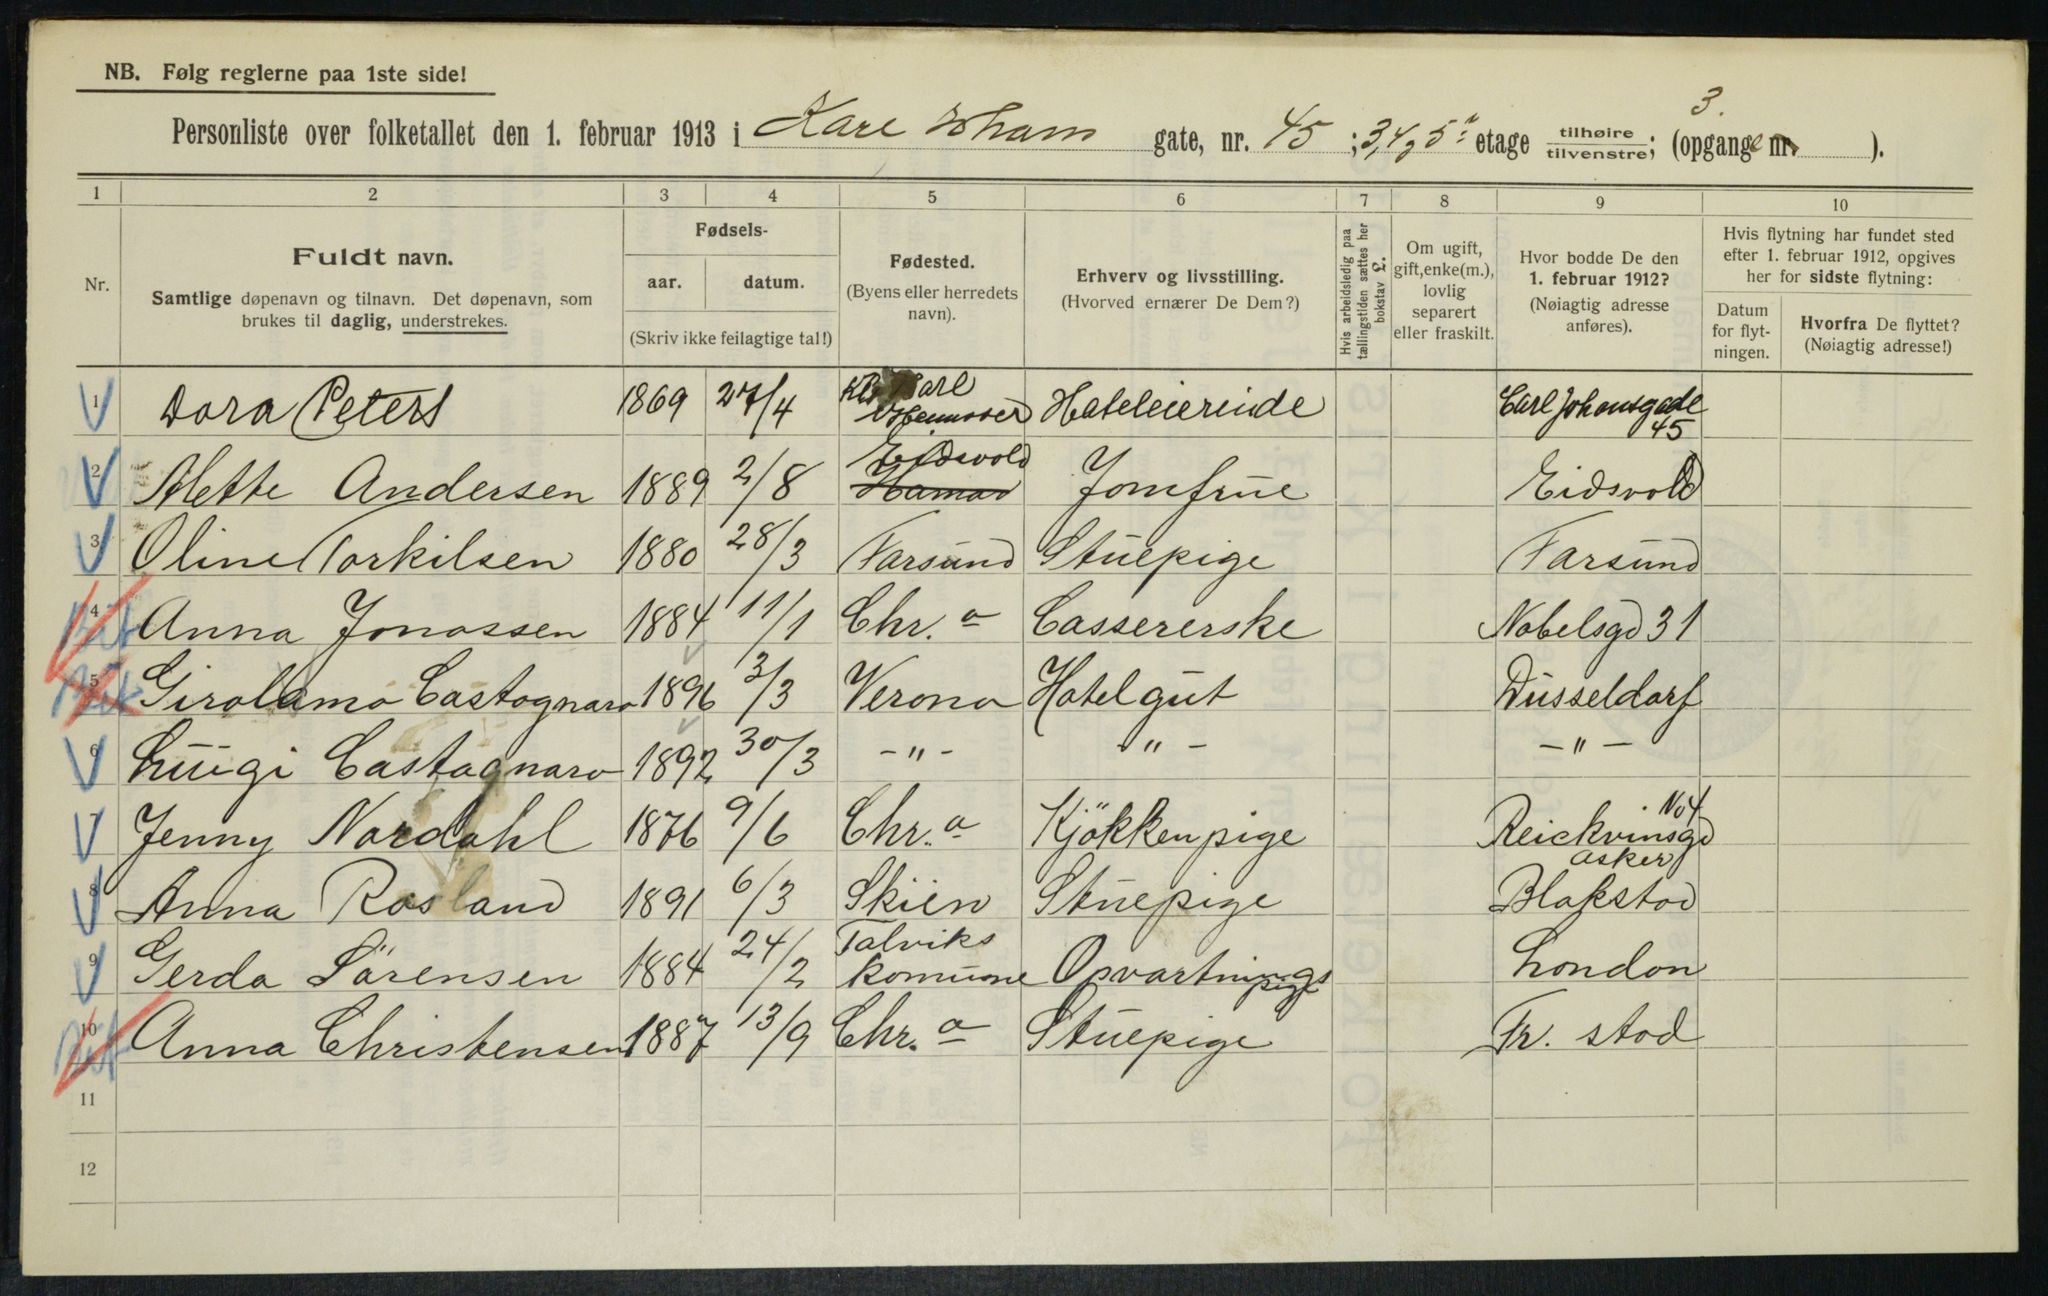 NB. Følg reglerne paa 1ste side!
3.
Personliste over folketallet den 1. februar 1913 i Karl Johans gate, nr. 45; 3, 4 og 5' etage tilhøire tilvenstre; (opgange nr. ).
1 2 3 4 5 6 7 8 9 10
Nr.
Fuldt navn.
Samtlige døpenavn og tilnavn. Det døpenavn, som
brukes til daglig, understrekes.
Fødsels-
aar. datum.
(Skriv ikke feilagtige tal!)
Fødested.
(Byens eller herredets
navn).
Erhverv og livsstilling.
(Hvorved ernærer De Dem?)
Hvis arbeidsledig paa
tællingstiden sættes her
bokstav £.
Om ugift,
gift, enke(m.),
lovlig
separert
eller fraskilt.
Hvor bodde De den
1. februar 1912?
(Nøiagtig adresse
anføres).
Hvis flytning har fundet sted
efter 1. februar 1912, opgives
her for sidste flytning:
Datum
for flyt-
ningen.
Hvorfra De flyttet?
(Nøiagtig adresse!)
1 Dora Peters 1869 27/4 Hannover Hoteleierinde Carl Johansgade 45
2 Alette Andersen 1889 2/8 Hamar Eidsvold Jomfrue Eidsvold
3 Oline Torkilsen 1880 28/3 Farsund Stuepige Farsund
4 Anna Jonassen 1884 11/1 Chr.a Cassererske Nobelsgd 31
5 Girolamo Castagnaro 1896 3/3 Verona Hotelgut Düsseldorf
6 Luuigi Castagnaro 1892 30/3 -"- -"- -"-
7 Jenny Nordahl 1876 9/6 Chr.a Kjökkenpige Reickvinsgd No 4
8 Anna Rosland 1891 6/3 Skien Stuepige Asker Blakstad
9 Gerda Sörensen 1884 24/2 Talviks komune Opvartningspige London
10 Anna Christensen 1887 13/9 Chr.a Stuepige Fr. stad
11
12